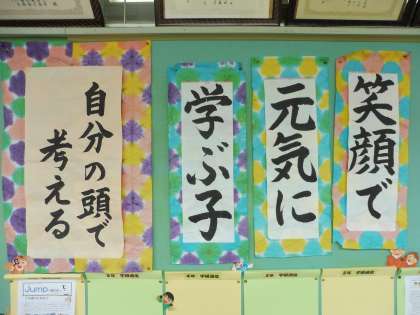 笑顔で
元気に
学ぶ子
自分の頭で
考える
Jump